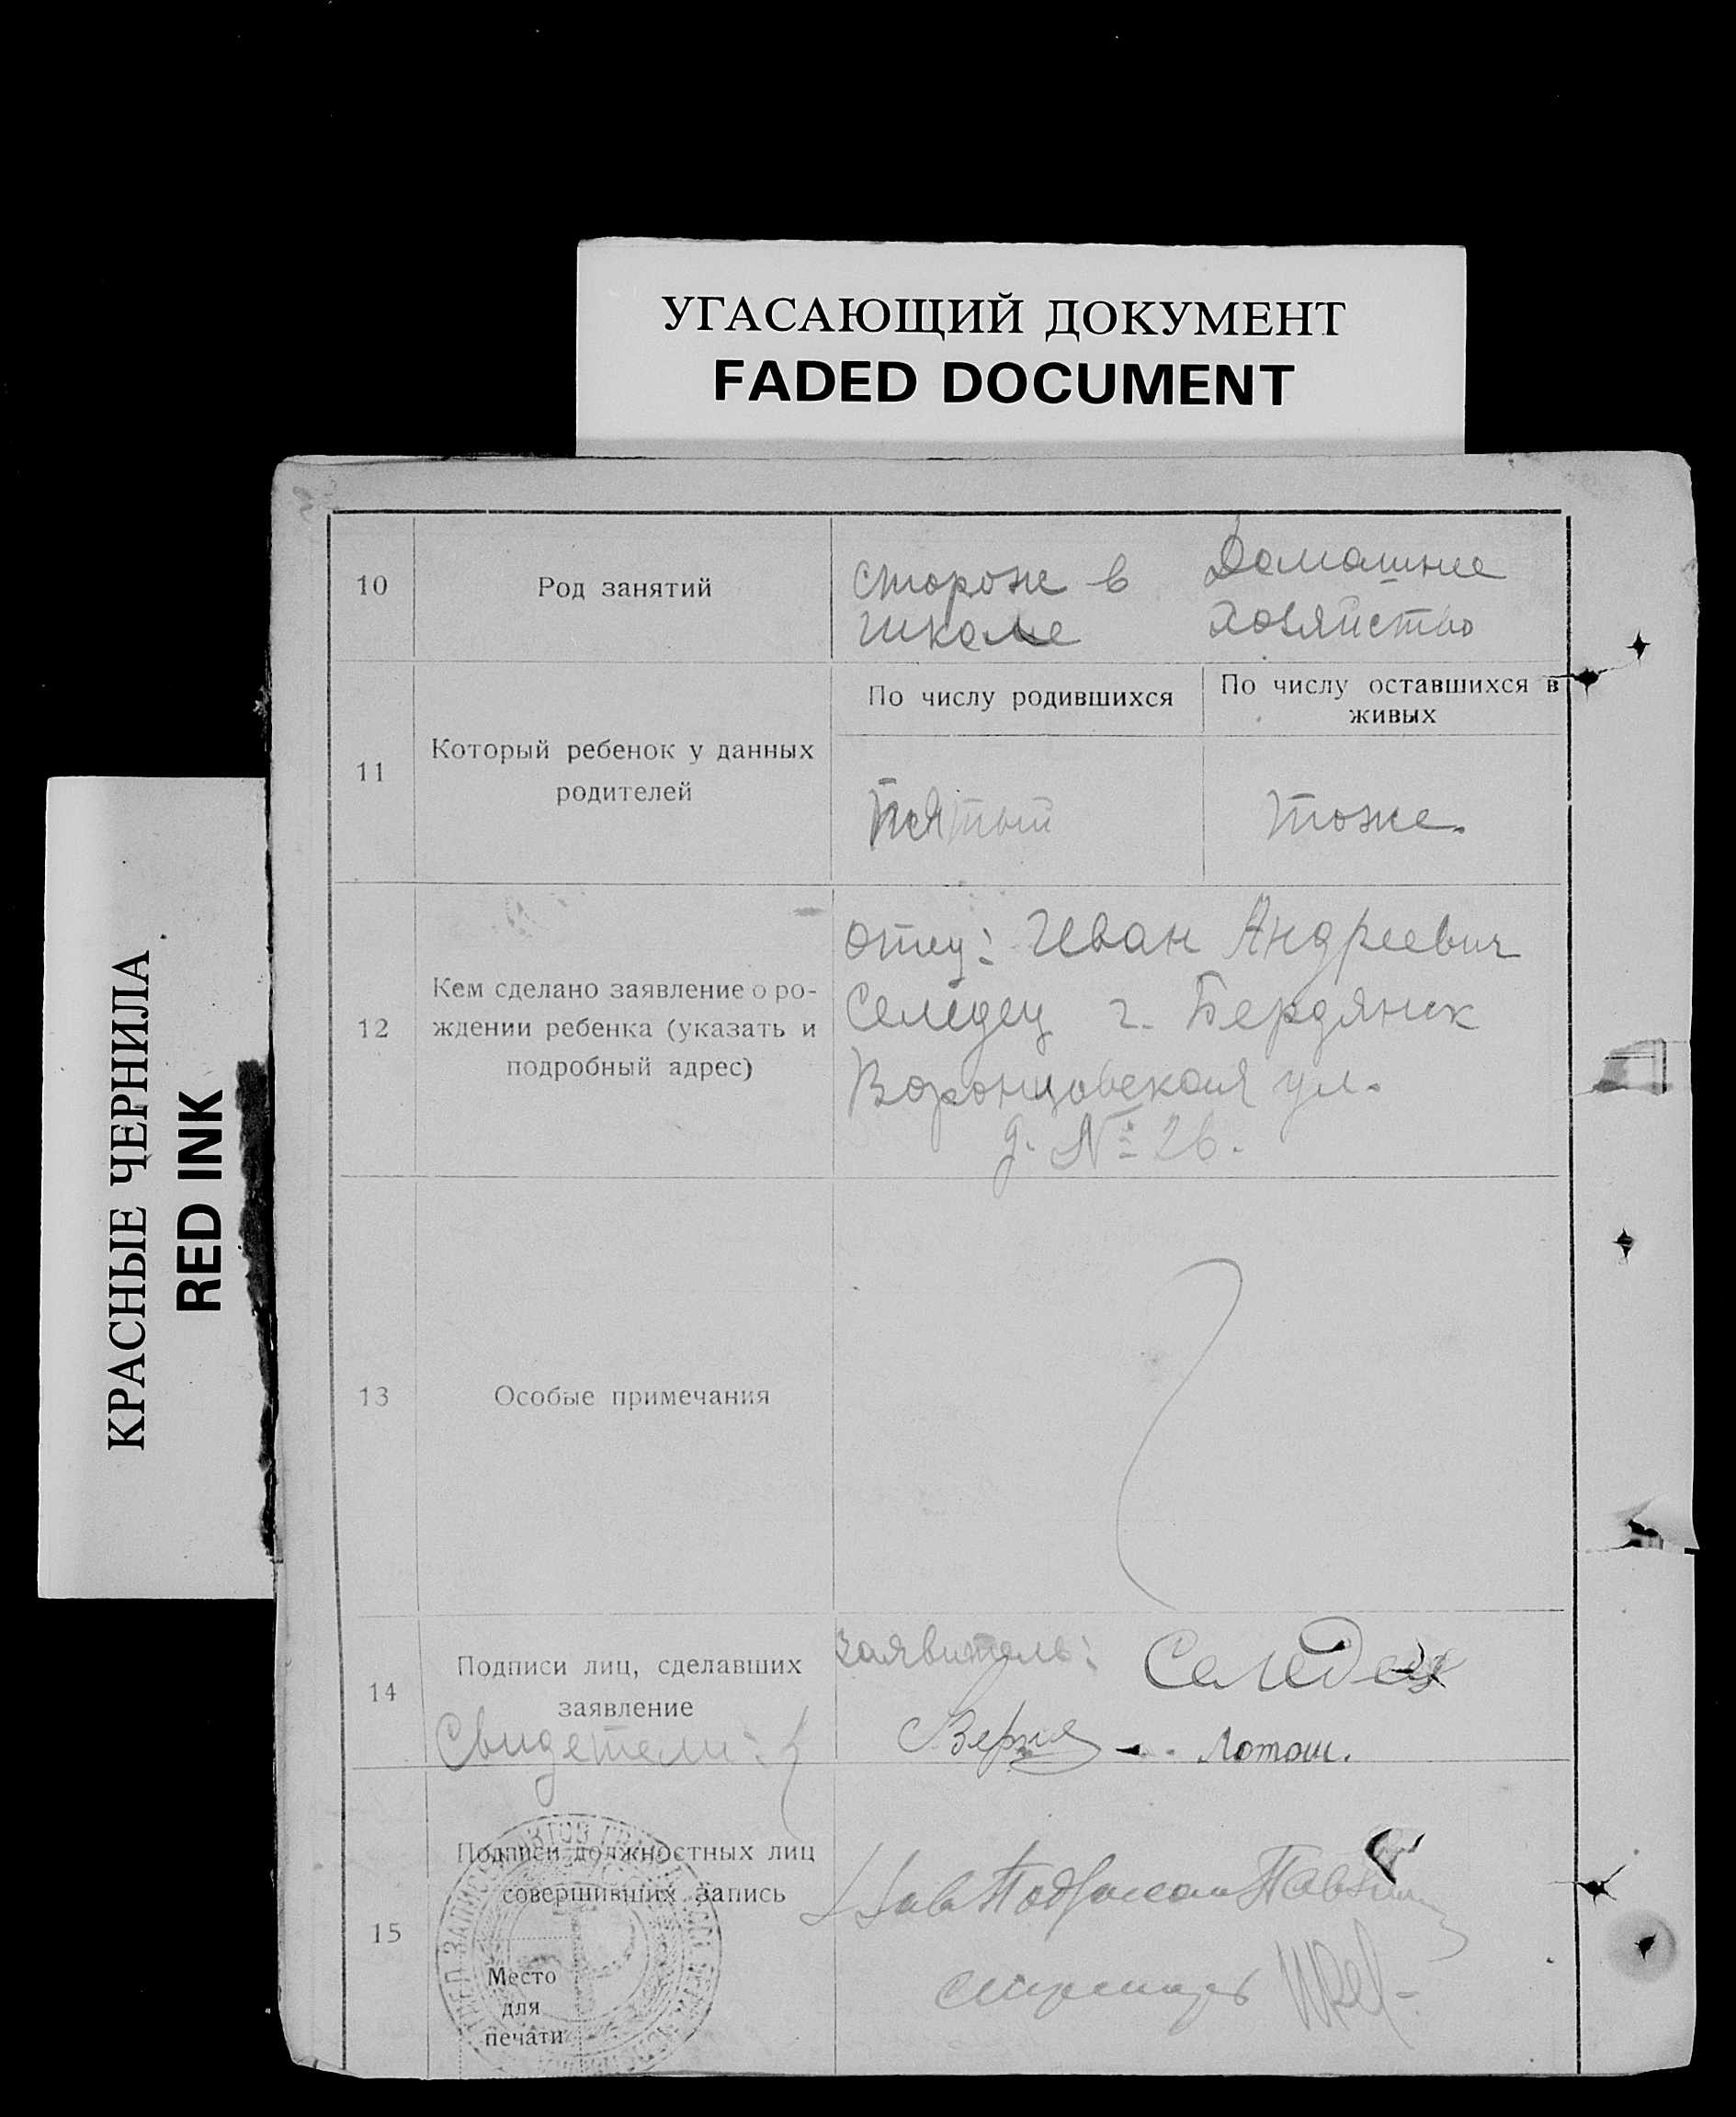 УГАСАЮЩИЙ ДОКУМЕНТ
FADED DOCUMENT
КРАСНЫЕ ЧЕРНИЛА
RED INK
10
Род занятий
сторож в
школе
Домашнее
хозяйство
11
Который ребенок у данных
родителей
По числу родившихся
Пятый
По числу оставшихся в
живых
тоже.
12
Кем сделано заявление о ро-
ждении ребенка (указать и
подробный адрес)
отец: Иван Андреевич
Селедец г. Бердянск
Воронцовская ул.
д. № 26.
13
Особые примечания
14
Подписи лиц, сделавших
заявление
Свидетели:
Заявитель: Селедец
Лотош.
15
Подписи должностных лиц
совершивших запись
Место
для
печати